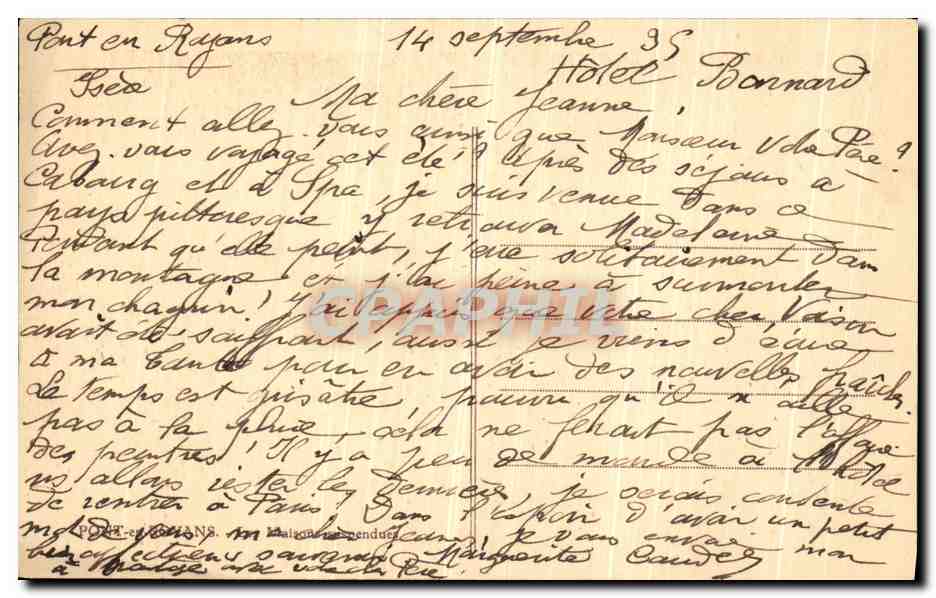 Pont en Royans 14 septembre 35
Isère Hôtel Bonnard
Ma chère Jeanne,
Comment allez-vous ainsi que Monsieur votre Père ?
Avez-vous voyagé cet été ? Après des séjours à
Cabourg et à Spa, je suis venue dans ce
pays pittoresque y retrouver Madeleine
Pendant qu'elle peint, j'erre solitairement dans
la montagne et j'ai peine à surmonter
mon chagrin ! J'ai appris que votre cher voisin
avait été souffrant, aussi je viens d'écrire
à ma tante pour en avoir des nouvelles fraîches.
Le temps est grisâtre, pourvu qu'il n'aille
pas à la pluie, cela ne ferait pas l'affaire
des peintres ! Il y a peu de monde à l'hôtel
ns allons rester les dernières, je serais contente
de rentrer à Paris ! Dans l'espoir d'avoir un petit
mot de vous, ma chère Jeanne, je vous envoie mon
affectueux souvenir Marguerite
à partager avec votre cher Père.
PONT-en-ROYANS. Maisons suspendues
CPAPHIL